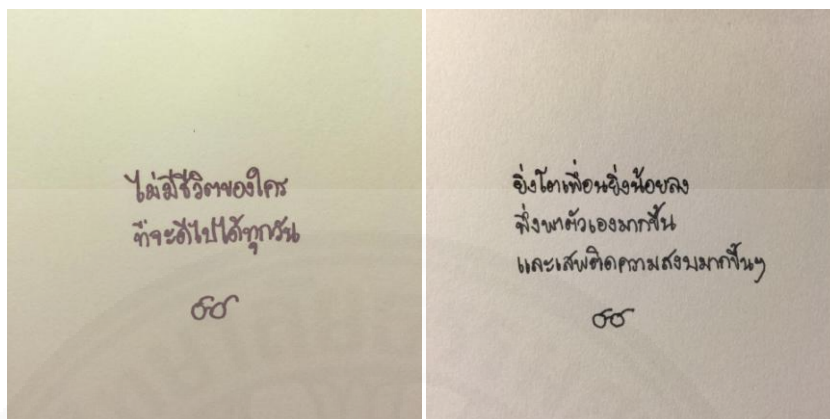 ไม่มีชีวิตของใคร
ที่จะดีไปได้ทุกวัน
ยิ่งโตเพื่อนยิ่งน้อยลง
พึ่งพาตัวเองมากขึ้น
และเสพติดความสงบมากขึ้นๆ